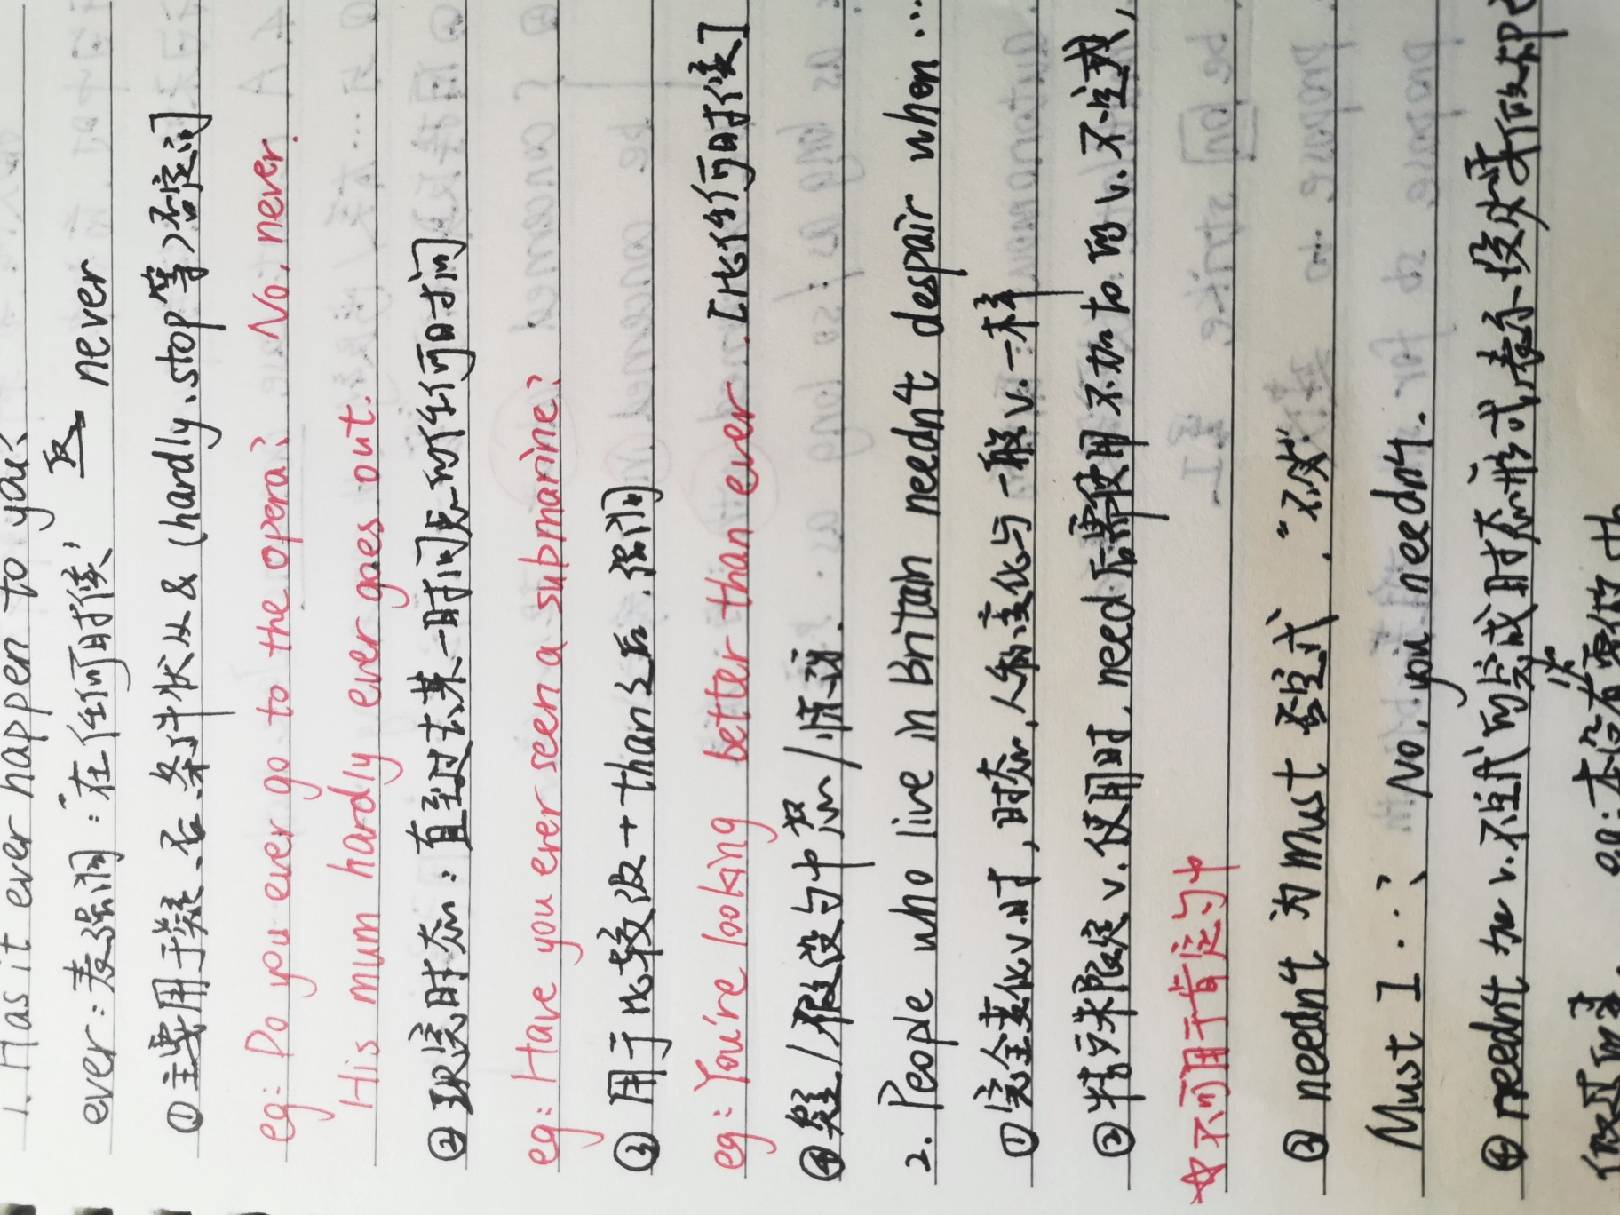 1. Has it ever happen to you?
ever:表强调:"在任何时候" 反 never
①主要用于疑、否、条件状从 & (hardly、stop等)否定词
eg: Do you ever go to the opera? No, never.
His mum hardly ever goes out.
②现完时态:直到过去某一时间点的任何时间
eg: Have you ever seen a submarine?
③用于比较级+than之后.强调
eg: You're looking better than ever. [比任何时候]
④疑/假设句中 怒/惊讶.
2. People who live in britain needn't despair when...
①完全变化v.时,时态,人称变化与一般v.一样
②特殊限定v.使用时,need后需使用不加to的v.不定式,
☆不可用于肯定句中
③needn't 为 must 否定式."不必"
Must I...? No, you needn't.
④needn't 加v.不定式的完成时态形式,表示没必要做却已
做过的事. eg:本没有必要做